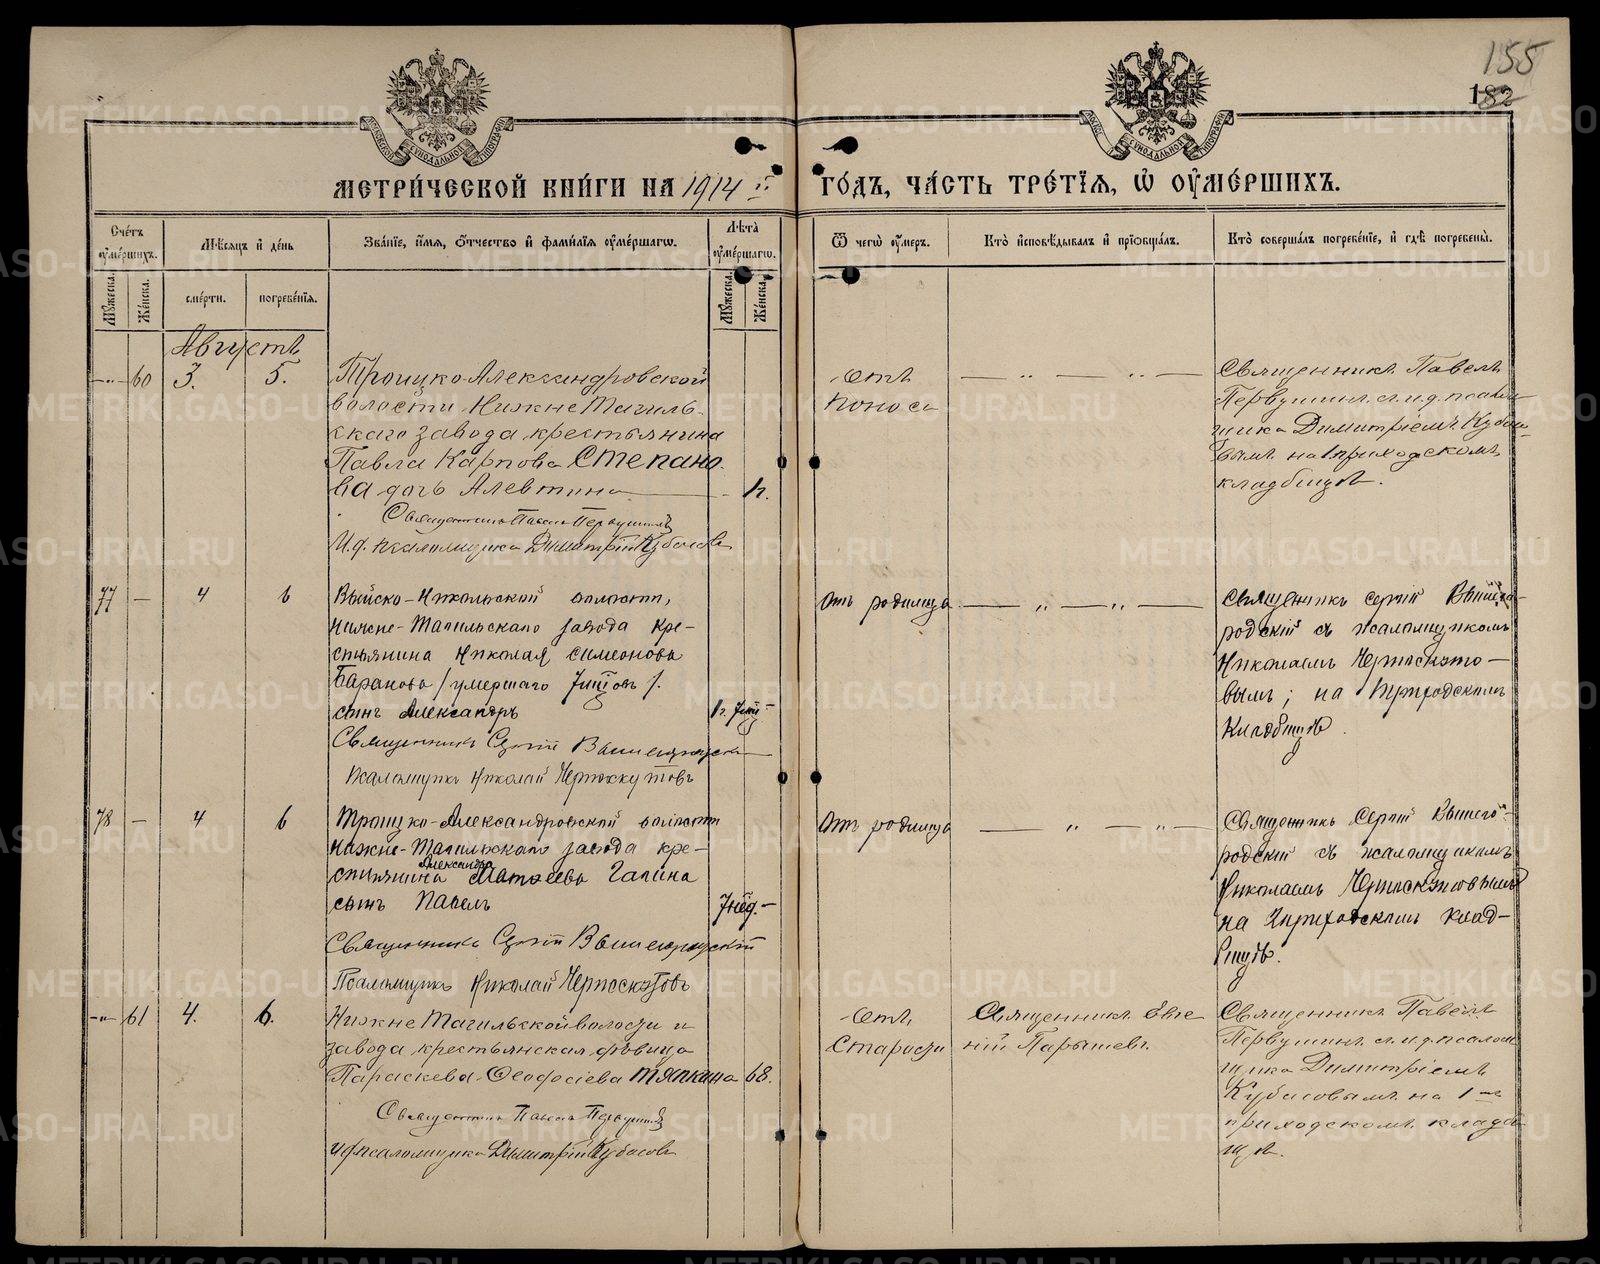 155
182
МЕТРИЧЕСКОЙ КНИГИ НА 1914 й ГОДЪ, ЧАСТЬ ТРЕТІЯ, Ѡ ОУМЕРШИХЪ.
Счетъ оумершихъ.
Мѣсяцъ и день
Званіе, имя, отчество и фамилія оумершагѡ.
Лѣта оумершагѡ.
Ѿ чегѡ оумеръ.
Кто исповѣдывалъ и пріобщалъ.
Кто совершалъ погребеніе, и гдѣ погребены.
Мужеска.
Женска.
смерти.
погребенія.
Мужеска.
Женска.
Августъ
—"— 60 3. 5.
Троицко-Александровской
волости Нижне Тагиль-
скаго завода крестьянина
Павла Карпова Степано-
ва дочь Алевтина
Священникъ Павелъ Первушинъ
И.д. псаломщика Димитрій Кубасовъ
Отъ
поноса
— " — " —
Священникъ Павелъ
Первушинъ съ и.д. псалом-
щика Димитріемъ Кубасо-
вымъ на 1 приходскомъ
кладбищѣ.
77 — 4 6
Выйско-Никольской волости,
Нижне-Тагильскаго завода кре-
стьянина Николая Симеонова
Баранова /умершаго
сынъ Александръ
Священникъ Сергій Вышегородскій
Псаломщикъ Николай Черноскутовъ
Отъ родимца
— " — " —
Священникъ Сергій Вышего-
родскій съ псаломщикомъ
Николаемъ Черноскуто-
вымъ; на Приходскомъ
Кладбищѣ
78 — 4 6
Троицко-Александровской волости
Нижне-Тагильскаго завода кре-
стьянина Александра Матѳеева Галина
сынъ Павелъ
7 нед. —
Священникъ Сергій Вышегородскій
Псаломщикъ Николай Черноскутовъ
Отъ родимца
— " — " —
Священникъ Сергій Вышего-
родскій съ псаломщикомъ
Николаемъ Черноскутовымъ
на Приходскомъ клад-
бищѣ.
—"— 61 4. 6.
Нижне Тагильской волости и
завода крестьянская дѣвица
Параскева Ѳеодосіева Тяпкина
68.
Священникъ Павелъ Первушинъ
И д псаломщика Димитрій Кубасовъ
Отъ
Старости
Священникъ Евге-
ній Парышевъ.
Священникъ Павелъ
Первушинъ съ и.д. псалом-
щика Димитріемъ
Кубасовымъ на 1-мъ
приходскомъ кладби-
щѣ.
METRIKI.GASO-URAL.RU